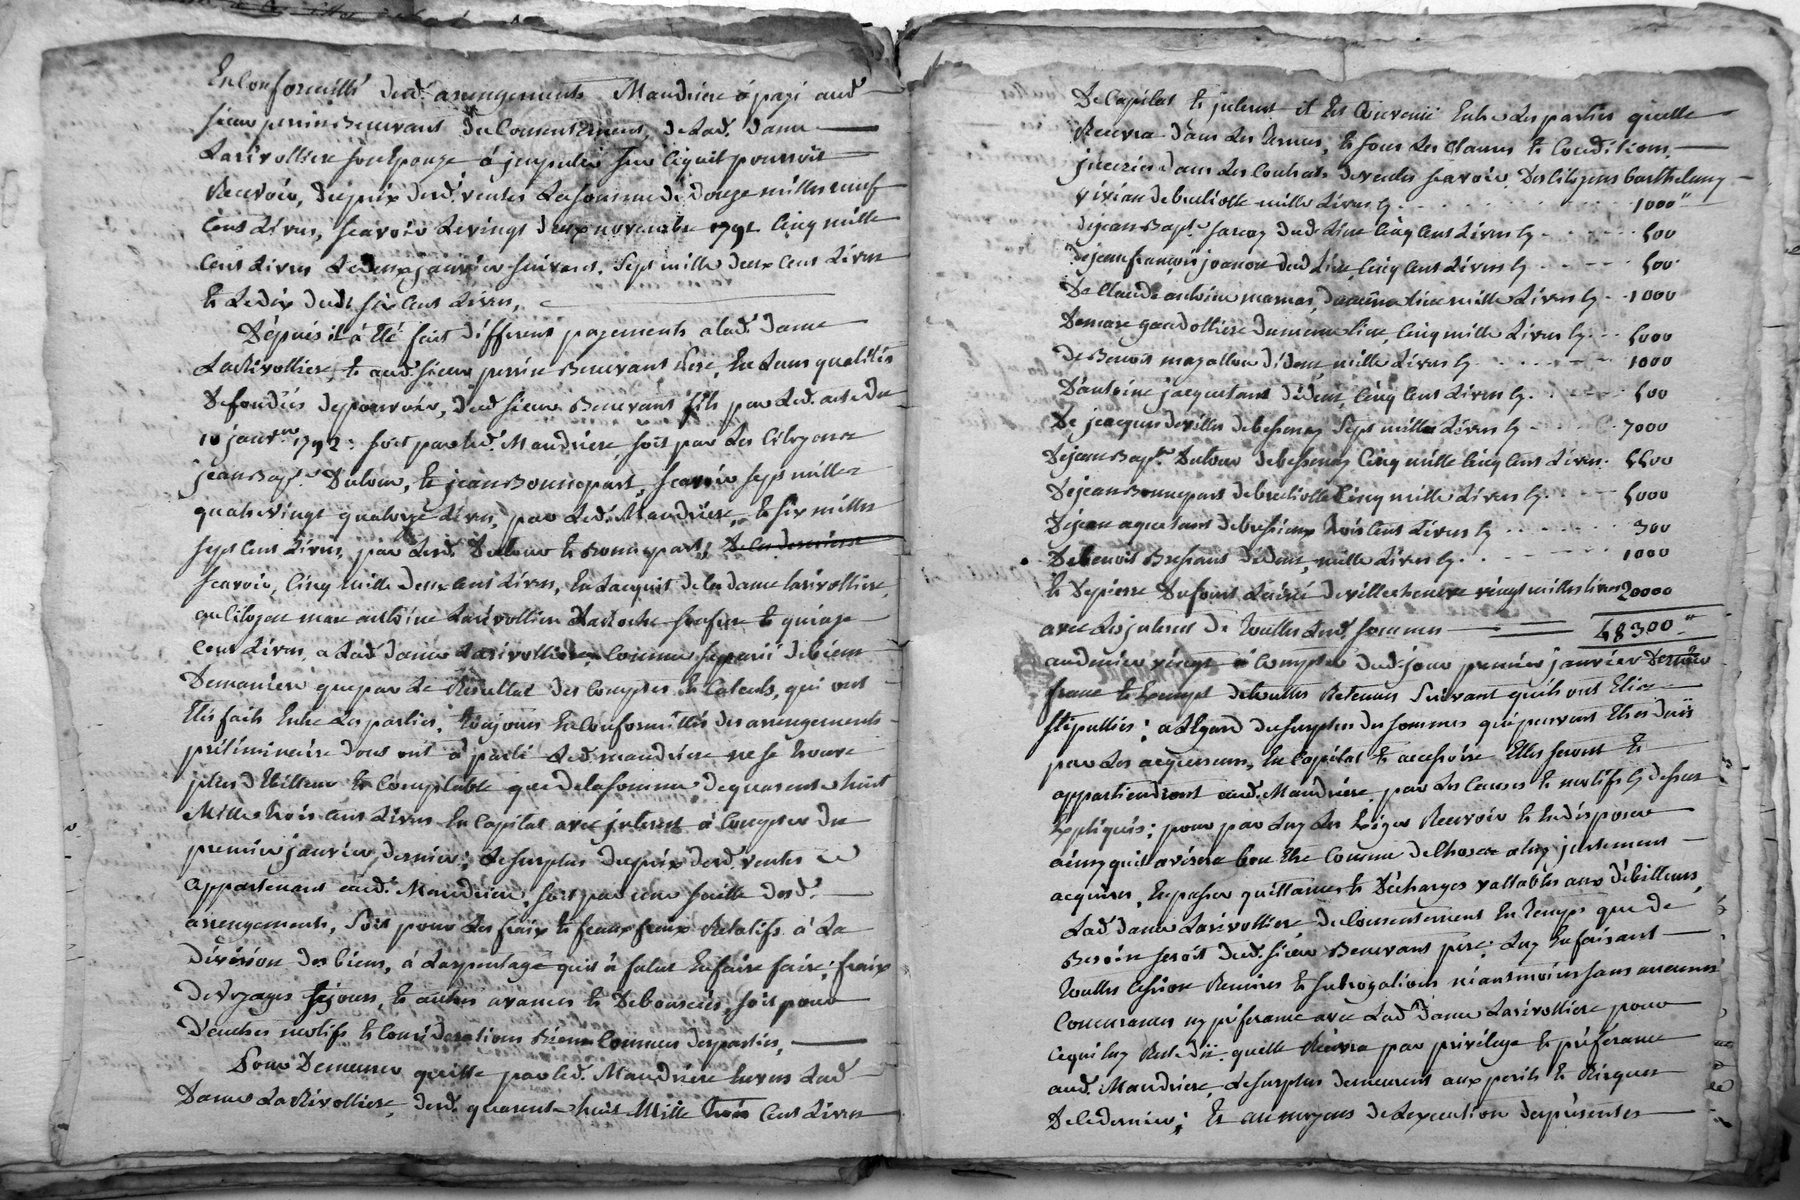 En Conformitté desd. arrengements Mandriere à payé aud
sieur perrin Benevant du Consentement, de Lad. dame
Larivolliere son Epouze à jmputer sur ce quil pourroit
Recevoir, du prix desd. ventes La somme de Douze milles neuf
Cens Livres, scavoir Le vingt deux novembre 1792 Cinq mille
Cens Livres Le deux janvier suivant, Sept mille deux Cens Livres
et Le dix dudt six Cens Livres,
Depuis il à Eté fait différent payements a lad. dame
LaRivolliere, et aud sieur perrin Benevant Pere, En Leurs qualittés
De fondées de pouvoir, dud sieur Benevant fils par Led. acte du
10 janvier 1792: soit par led. Mandriere soit par Les Citoyens
jean Bapt. Dulour, et jean Bonnepart, scavoir sept milles
quatre vingt quatorze Livres, par Led. Mandriere, et six milles
sept Cens Livres, par Lesd. Dulour et Bonnepart;
scavoir, Cinq mille deux Cens Livres, En Lacquit de la dame larivolliere
au Citoyen marc anthoine Larivolliere Laroche son frere et quinze
Cens Livres, a Lad. dame Larivolliere, Comme separéé de biens
De maniere que par Le Résultat des Comptes et Calculs, qui ont
Etés faits Entre Les parties, toujours En Conformittés des arrengements
préliminaire dont ont à parlé Led. mandriere ne se trouve
plus débitteur et Comptable que de la somme de quarente huit
Mille trois Cens Livres En Capital avec jnterest à Compter du
premier janvier, dernier; Le surplus du prix desd. ventes
appartenant aud. Mandriere, soit par une suitte desd.
arrengements, Soit pour Les fraix et faux fraix Relatifs à La
division des biens, à Larpentage quil à falut En faire faire; fraix
de voyages séjours, et autres avances et Deboursés, soit pour
d'autres motifs et Considerations Biens Connues des parties,
Pour Demeurer quitte par led. Mandriere Envers Lad
Dame LaRivolliere, desd. quarente huit Mille trois Cens Livres
De Capital et jnterest il Est Convenu Entre Les parties quelle
Recevra dans Les termes, et sous Les Clauses et Conditions
jnserées dans Les Contrats de ventes scavoir. Des Citoyens barthelemy
vivian de brulliolle mille Livres Cy 1000
de jean Bapt. dud. Lieu Cinq Cens Livres Cy 500
de jean françois joanon dud Lieu, Cinq Cens Livres Cy 500
De Claude antoine du même Lieu mille Livres Cy 1000
De marc gandolliere du meme Lieu, Cinq mille Livres Cy 5000
de Benoit magallon d'idem, mille Livres Cy 1000
D'antoine jacquetant d'idem, Cinq Cens Livres Cy 500
De jacques deville de bessenay Sept milles Livres Cy 7000
De jean Bapt. Dulour de bessenay Cinq mille Cinq Cens Livres 5500
De jean Bonnepart de brulliolle Cinq mille Livres Cy 5000
De jean de bressieux trois Cens Livres Cy 300
De benoit d'idem, mille Livres Cy 1000
et De pierre Dufour Lainé de villechenève vingt milles livres 20000
avec Les jnterest de touttes Lesd. sommes 48300
au denier vingt à Compter dud. jour premier janvier Dernier
franc et Exempt de touttes Retenues Suivant quils ont Eté
stipullées; a Légard du surplus des sommes qui peuvent Etre duës
par Les acquereurs, En Capital et accessoire Elles seront et
appartiendront aud. Mandriere, par Les Causes et motifs Cy dessus
Expliqués; pour par Luy Les Exiger Recevoir et En disposer
ainsy quil avisera bon Etre Comme de Chose a luy justement
acquises, En passer quittances et Décharges vallables aux débitteurs,
Lad dame Larivolliere du Consentement En temps que de
Besoin seroit dud. sieur Benevant pere; Luy En faisant
touttes Cession Remises et subrogations néantmoins sans aucunes
Concurrances ny préferance avec Lad dame Larivolliere pour
Ce qui luy Est dû: quelle Recevra par privilege et préferance
aud. Mandriere, Le surplus demeurant aux perils et Risques
De Ce dernier; Et au moyens de Lexecution des présentes